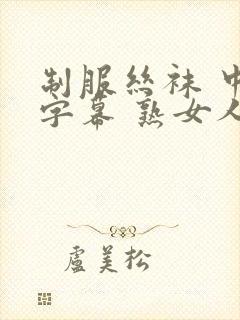 制服絲袜 中
字幕 熟女人
盧美松